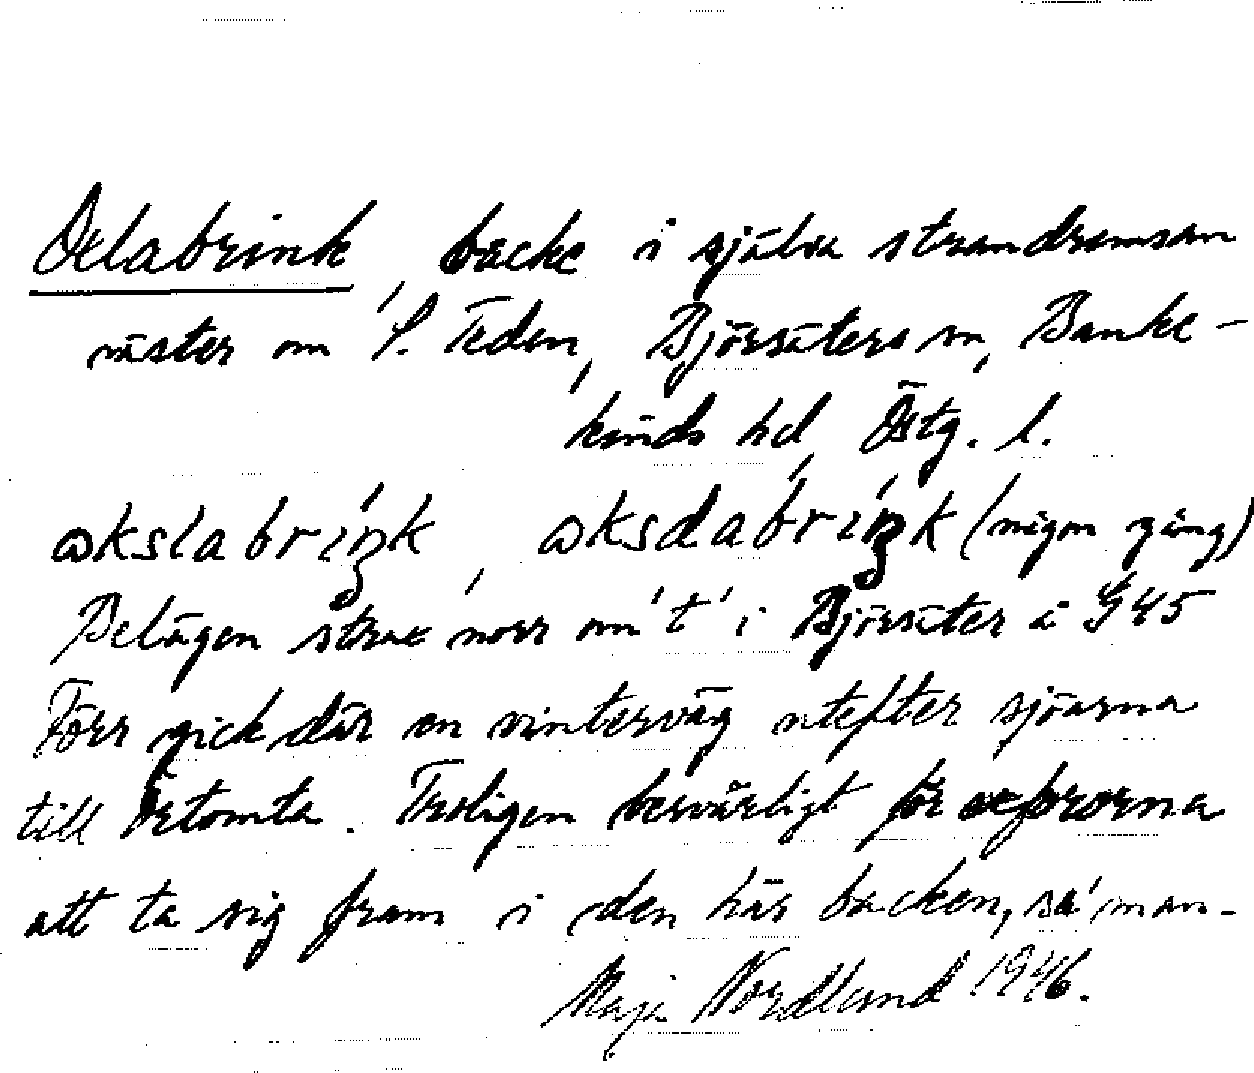 Oxlabrink, backe i själva strandremsan
väster om S. Teden, Björsäters sn, Banke-
kinds hd, Östg. l.
ωkslabriŋk, ωksdabriŋk (någon gång)
Belägen strax norr om 't' i Björsäter å G 45
Förr gick där en vinterväg utefter sjöarna
till Örtomta. Troligen besvärligt för oxfororna
att ta sig fram i den här backen, sa' man.
Maja Nordlund 1946.